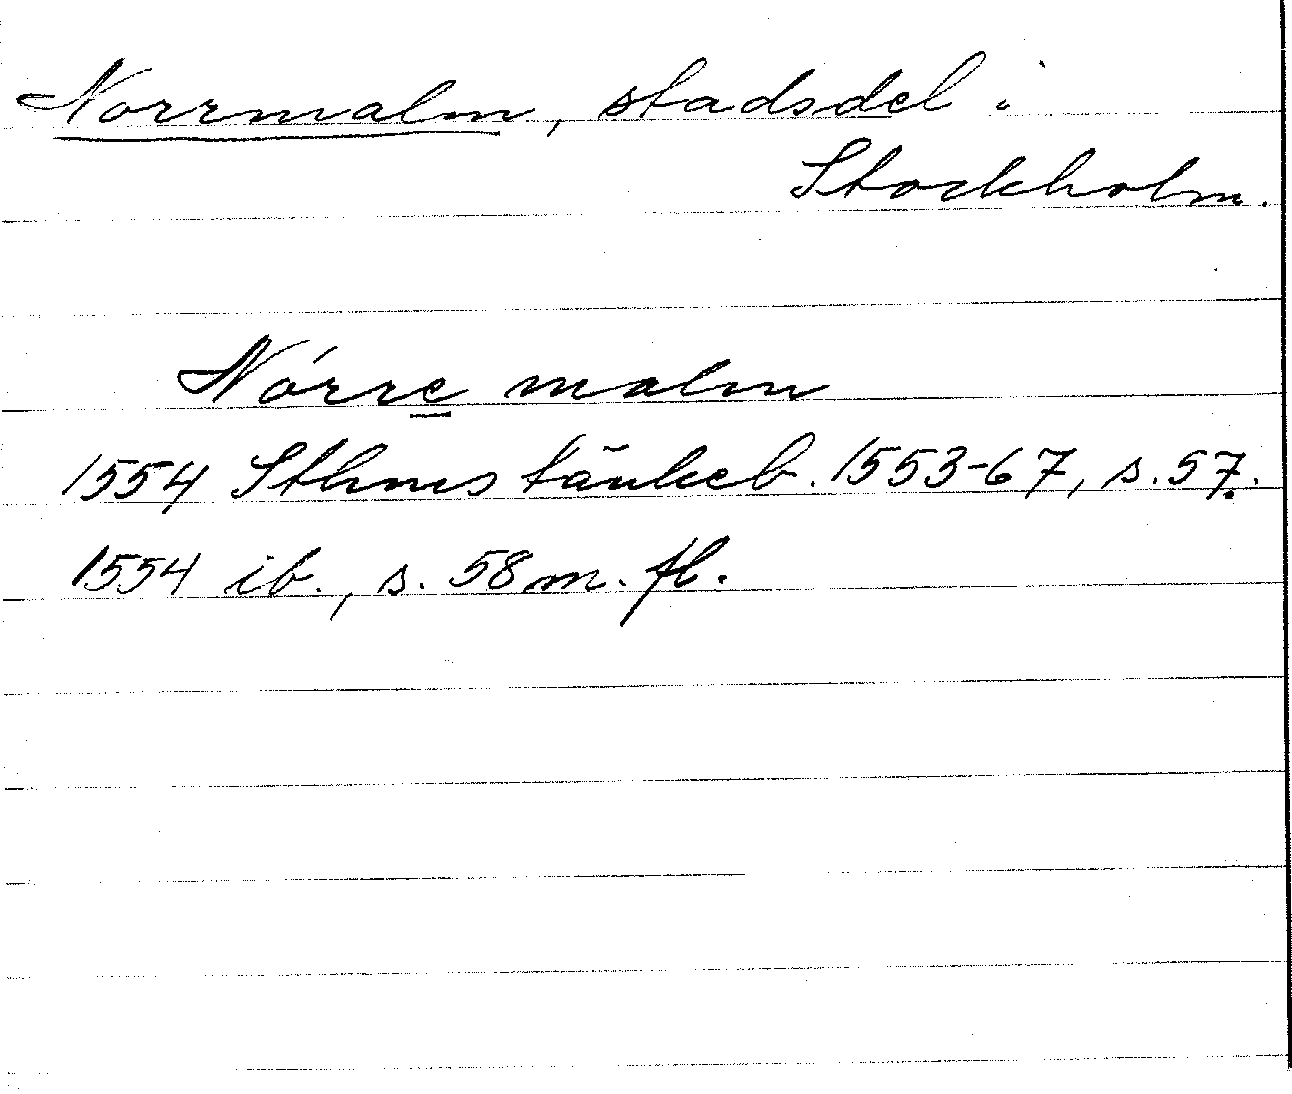 Norrmalm, stadsdel i
Stockholm.
Nórre malm
1554 Sthms tänkeb. 1553-67, s. 57.
1554 ib., s. 58 m. fl.